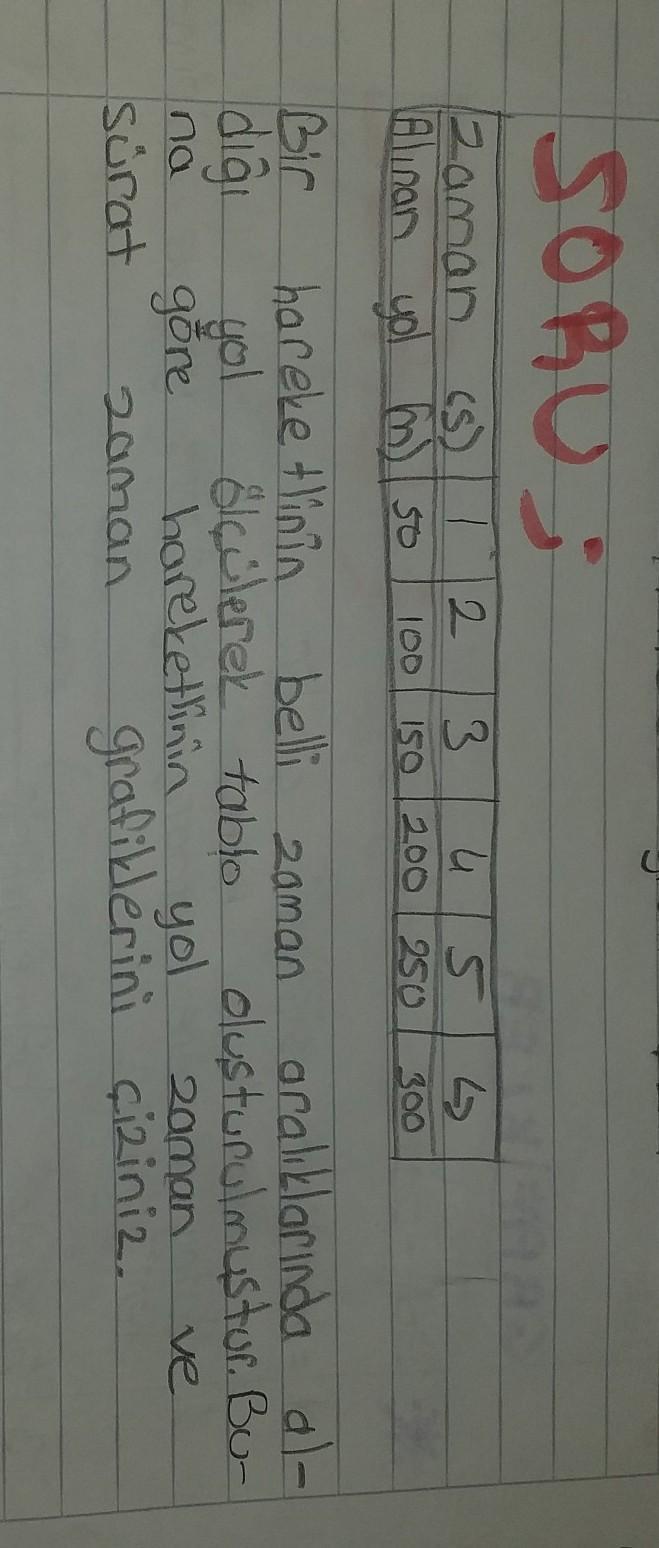 SORU:
Zaman (s) 1 2 3 4 5 6
Alınan yol (m) 50 100 150 200 250 300
Bir hareketlinin belli zaman aralıklarında al-
dığı yol ölçülerek tablo oluşturulmuştur. Bu-
na göre hareketlinin yol zaman ve
sürat zaman grafiklerini çiziniz.